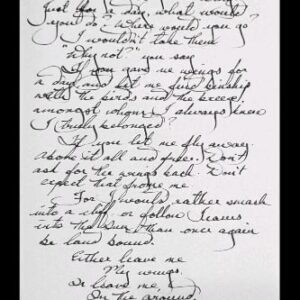 just for a day, what would
you do? Where would you go?
I wouldn't take them
"Why not?" you say
If you gave me wings for
a day and let me find kinship
with the birds and the breeze,
amongst whom I always knew
I truly belonged?
If you let me fly away
above it all and free. Don't
ask for the wings back. Don't
expect that from me
For I would rather smash
into a cliff or follow Icarus
into the sun than once again
be land bound.
Either leave me
My wings,
Or leave me,
On the ground.